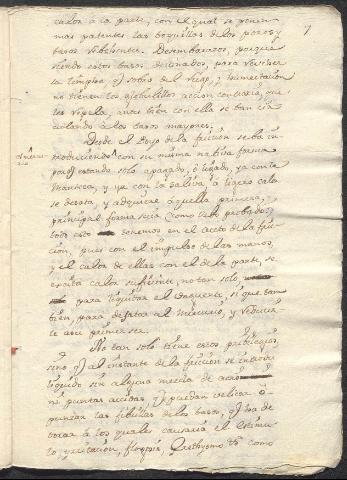 7
calor à la parte, con el qual se ponen
mas patentes las boquillas de los poros, y
vasos vibelentes. Desembarazo, porque
siendo estos vasos destinados, para recivir
la limpha y sobra del riego, y nutrición
no tienen los globulillos acción contraria, que
les repela, antes bien con ella se ban cir
culando à los vasos mayores.
Desde el Poyo de la fricción se ba in
troduciendo con su misma nativa forma
pues estando solo apagado, ò ligado, ya con la
Manteca, y ya con la saliva, à ligero calor
se desata, y adquiere aquella primera,
principal forma suia como dexo probado:
todo esto tenemos en el acto de la fric
ción, pues con el impulso de las manos,
y el calor de ellas con el de la parte, se
excita calor suficiente, no tan solo
para liquidar el Unguento, si que tam
bién, para desatar al Mercurio, y reducir
le à su primer ser.
No tan solo tiene estos predicados,
sino q al instante de la fricción se introduce
liquido sin alguna mezcla de acro
ni puntas accidas, q puedan velicar ò
punzar las fibrillas de los vasos, y los de
torar à los quales causaria el estimu
lo, irritación, flogosis, Erethysmo &c como